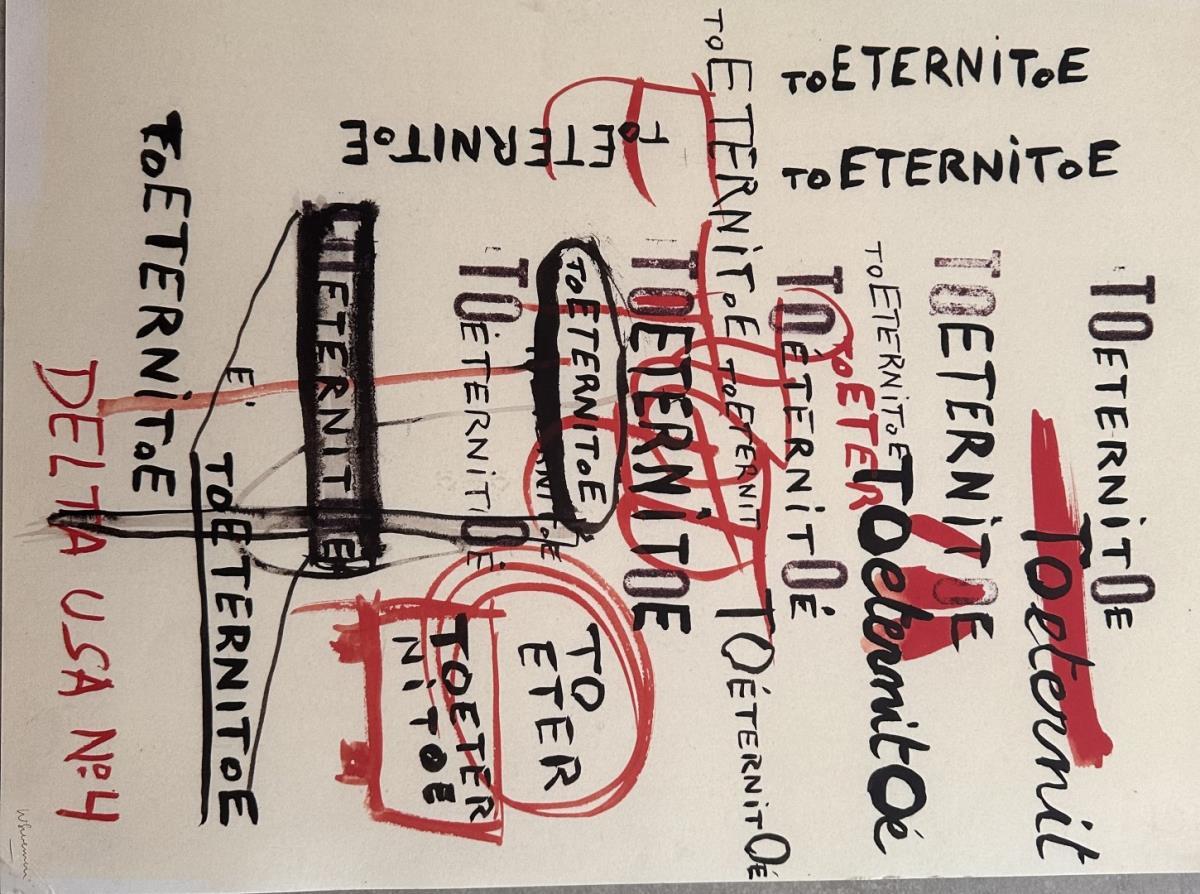 TO ETERNITOE
TO ETERNITOE
TO ETERNITOE
TO ETERNITOE
TOETERNITOE
TO ETERNIT
TOÉTERNITOÉ
TOETERNITOE
Toeternit
TOETERNITOE
TO ETERNITOE
TOeternitOé
TOETER
TOÉTERNITOÉ
TOETERNITOE
TOETERNITOE
TOÉTERNITOÉ
ETERNIT
TO
ETER
TOETER
NITOE
TOETERNITOE
E'
TOETERNITOE
DELTA USA Nº4